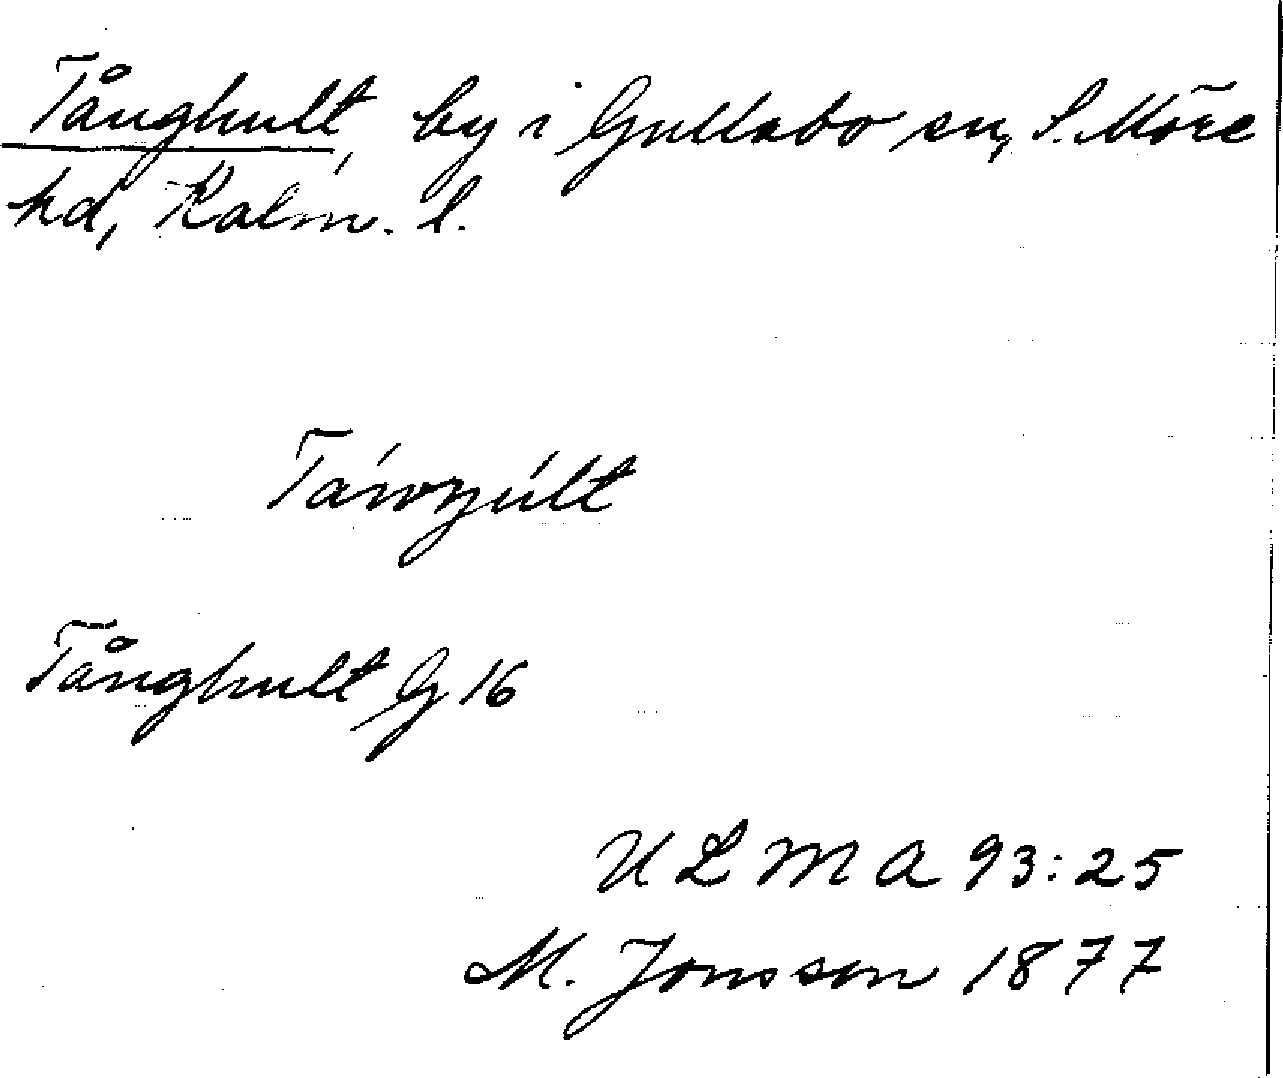 Tånghult, by i Gullabo sn, S. Möre
hd, Kalm. l.
Tånghult G 16
ULMA 93:25
M. Jonsson 1877